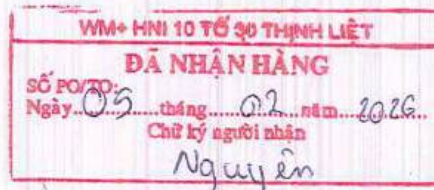 WM+ HNI 10 TỔ 30 THỊNH LIỆT
ĐÃ NHẬN HÀNG
SỐ PO/TO:
Ngày..05.....tháng.....02...năm...2026
Chữ ký người nhận
Nguyên